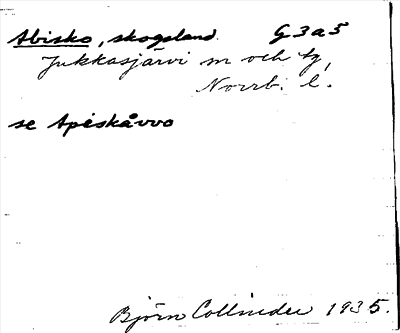 Abisko, skogsland. G3a5
Jukkasjärvi sn och tg,
Norrb. l.
se Apeskåvvo
Björn Collinder 1935.